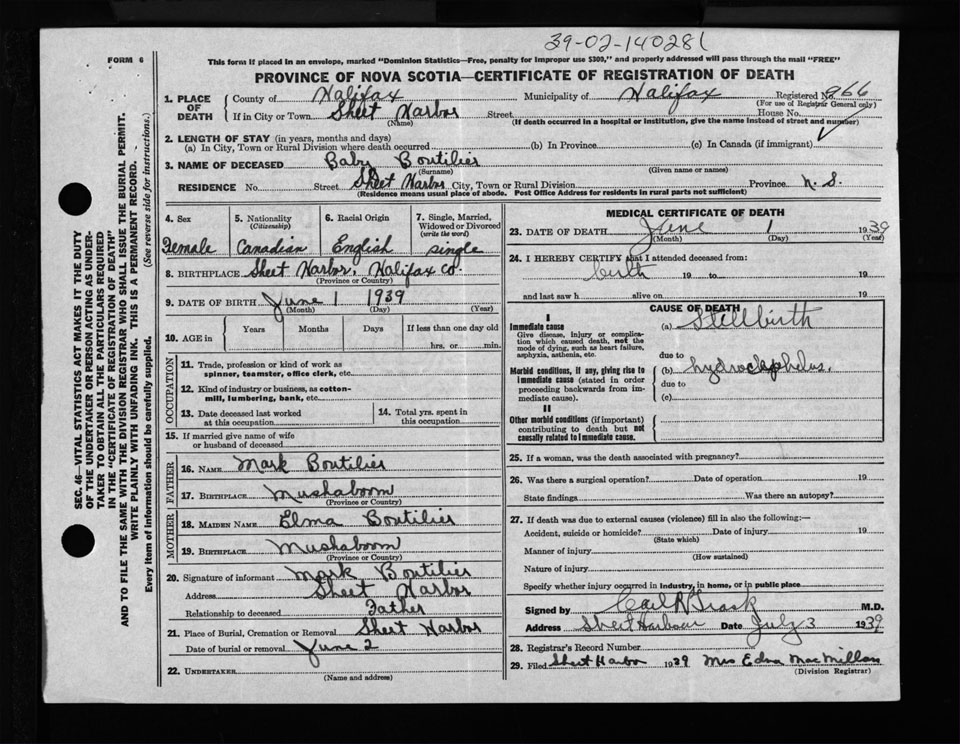 39-02-140281
FORM 6
This form if placed in an envelope, marked "Dominion Statistics—Free, penalty for improper use $300," and properly addressed will pass through the mail "FREE"
PROVINCE OF NOVA SCOTIA—CERTIFICATE OF REGISTRATION OF DEATH
SEC. 46—VITAL STATISTICS ACT MAKES IT THE DUTY
OF THE UNDERTAKER OR PERSON ACTING AS UNDER-
TAKER TO OBTAIN ALL THE PARTICULARS REQUIRED
IN THE "CERTIFICATE OF REGISTRATION OF DEATH"
AND TO FILE THE SAME WITH THE DIVISION REGISTRAR WHO SHALL ISSUE THE BURIAL PERMIT.
WRITE PLAINLY WITH UNFADING INK. THIS IS A PERMANENT RECORD.
Every item of information should be carefully supplied. (See reverse side for instructions.)
1. PLACE OF DEATH County of Halifax Municipality of Halifax Registered No. 966
(For use of Registrar General only)
If in City or Town Sheet Harbor Street House No.
(Name) (If death occurred in a hospital or institution, give the name instead of street and number)
2. LENGTH OF STAY (in years, months and days)
(a) In City, Town or Rural Division where death occurred (b) In Province (c) In Canada (if immigrant)
3. NAME OF DECEASED Baby Boutilier
(Surname) (Given name or names)
RESIDENCE No. Street Sheet Harbor City, Town or Rural Division Province N. S.
(Residence means usual place of abode. Post Office Address for residents in rural parts not sufficient)
4. Sex 5. Nationality (Citizenship) 6. Racial Origin 7. Single, Married, Widowed or Divorced (write the word)
Female Canadian English single
8. BIRTHPLACE Sheet Harbor, Halifax Co.
(Province or Country)
9. DATE OF BIRTH June 1 1939
(Month) (Day) (Year)
10. AGE in Years Months Days If less than one day old
hrs. or min.
OCCUPATION
11. Trade, profession or kind of work as
spinner, teamster, office clerk, etc.
12. Kind of industry or business, as cotton-
mill, lumbering, bank, etc.
13. Date deceased last worked
at this occupation
14. Total yrs. spent in
this occupation
15. If married give name of wife
or husband of deceased
FATHER
16. NAME Mark Boutilier
17. BIRTHPLACE Mushaboom
(Province or Country)
MOTHER
18. MAIDEN NAME Elma Boutilier
19. BIRTHPLACE Mushaboom
(Province or Country)
20. Signature of informant Mark Boutilier
Address Sheet Harbor
Relationship to deceased Father
21. Place of Burial, Cremation or Removal Sheet Harbor
Date of burial or removal June 2
22. UNDERTAKER
(Name and address)
MEDICAL CERTIFICATE OF DEATH
23. DATE OF DEATH June 1 1939
(Month) (Day) (Year)
24. I HEREBY CERTIFY that I attended deceased from:
birth 19 to 19
and last saw h alive on 19
CAUSE OF DEATH
I
Immediate cause (a) Stillbirth
Give disease, injury or complica-
tion which caused death, not the
mode of dying, such as heart failure,
asphyxia, asthenia, etc.
due to
Morbid conditions, if any, giving rise to (b) hydrocephelus.
immediate cause (stated in order due to
proceeding backwards from im-
mediate cause). (c)
II
Other morbid conditions (if important)
contributing to death but not
causally related to Immediate cause.
25. If a woman, was the death associated with pregnancy?
26. Was there a surgical operation? Date of operation 19
State findings Was there an autopsy?
27. If death was due to external causes (violence) fill in also the following:—
Accident, suicide or homicide? Date of injury 19
(State which)
Manner of injury
(How sustained)
Nature of injury
Specify whether injury occurred in industry, in home, or in public place
Signed by Carl R Trask M.D.
Address Sheet Harbour Date July 3 1939
28. Registrar's Record Number
29. Filed Sheet Harbor 1939 Mrs Edna MacMillan
(Division Registrar)